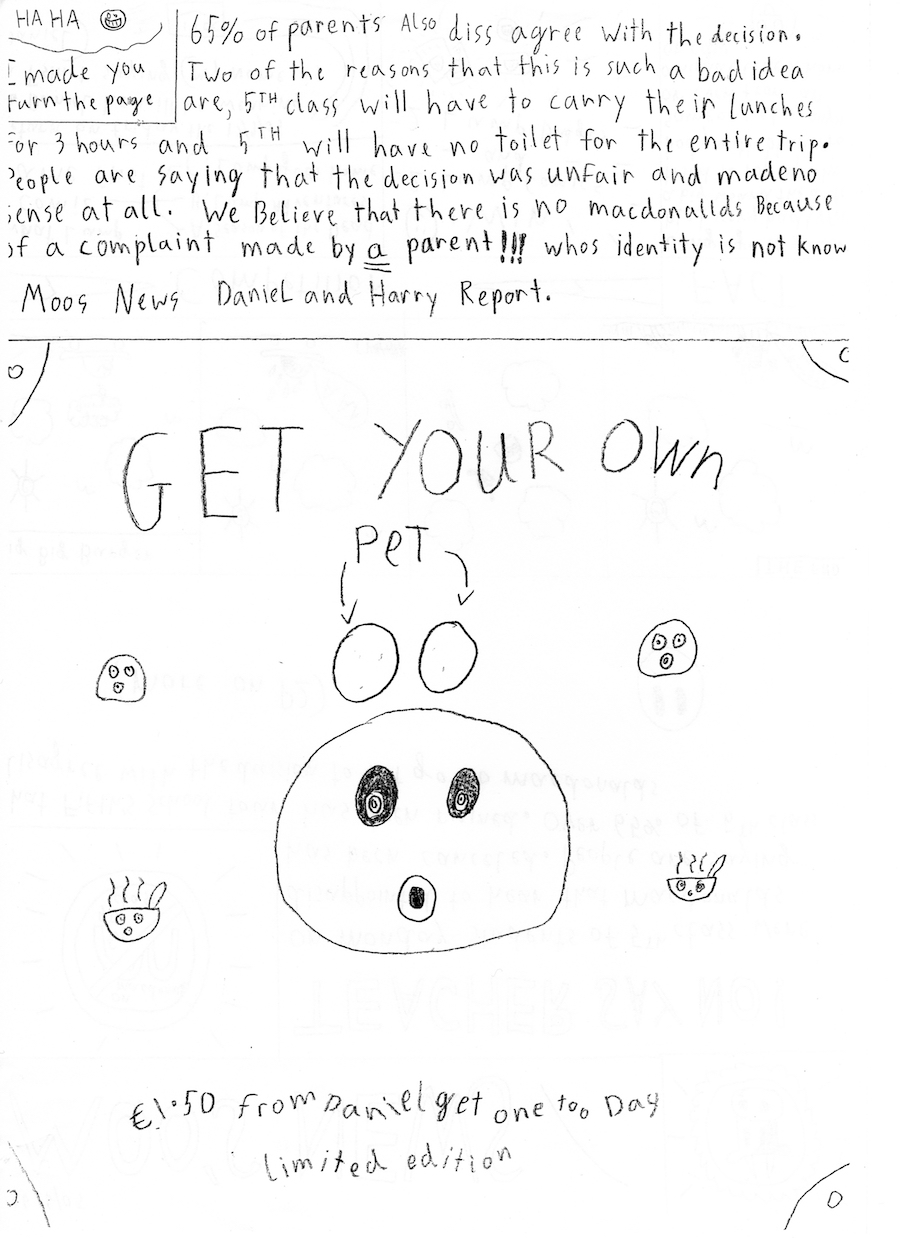 HA HA
I made you
turn the page
65% of parents Also diss agree with the decision.
Two of the reasons that this is such a bad idea
are, 5TH class will have to carry their Lunches
For 3 hours and 5TH will have no toilet for the entire trip.
People are saying that the decision was unfair and madeno
sense at all. We Believe that there is no macdonallds Because
of a complaint made by a parent!!! whos identity is not know
Moos News Daniel and Harry Report.
GET YOUR Own
PeT
€1.50 from Daniel get one too Day
Limited edition